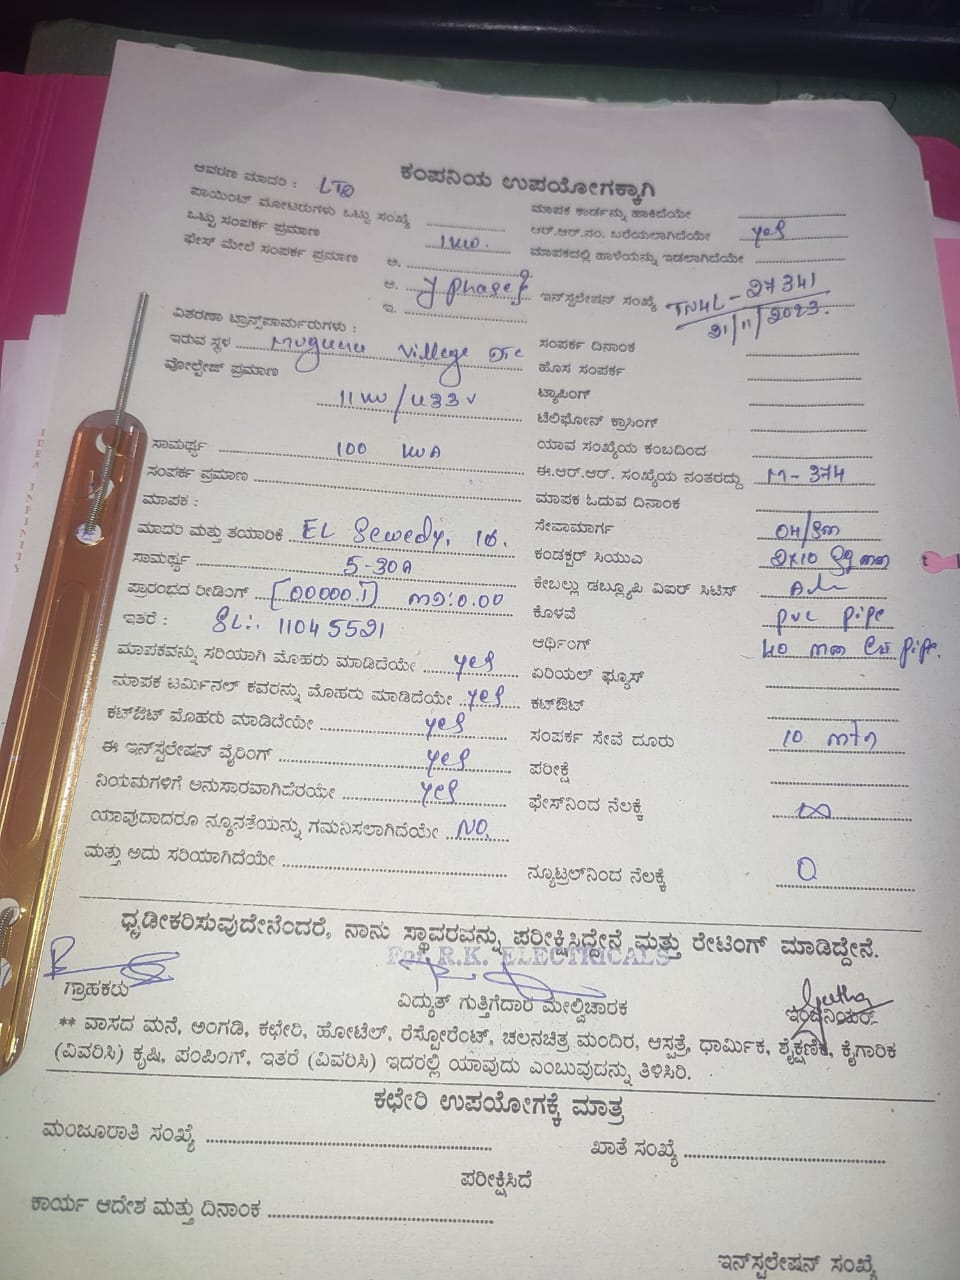 ಕಂಪನಿಯ ಉಪಯೋಗಕ್ಕಾಗಿ
ಆವರಣ ಮಾದರಿ :
ಪಾಯಿಂಟ್ ಮೋಟರುಗಳು ಒಟ್ಟು ಸಂಖ್ಯೆ
ಒಟ್ಟು ಸಂಪರ್ಕ ಪ್ರಮಾಣ
ಫೇಸ್ ಮೇಲೆ ಸಂಪರ್ಕ ಪ್ರಮಾಣ ಅ.
ಆ. phase
ಇ.
ವಿತರಣಾ ಟ್ರಾನ್ಸ್‌ಪಾರ್ಮರುಗಳು :
ಇರುವ ಸ್ಥಳ Village
ವೋಲ್ಟೇಜ್ ಪ್ರಮಾಣ
ಸಾಮರ್ಥ್ಯ 100 KVA
ಸಂಪರ್ಕ ಪ್ರಮಾಣ
ಮಾಪಕ :
ಮಾದರಿ ಮತ್ತು ತಯಾರಿಕೆ EL Sewedy.
ಸಾಮರ್ಥ್ಯ 5-30A
ಪ್ರಾರಂಭದ ರೀಡಿಂಗ್
ಇತರೆ : SL:. 11045521
ಮಾಪಕವನ್ನು ಸರಿಯಾಗಿ ಮೊಹರು ಮಾಡಿದೆಯೇ yes
ಮಾಪಕ ಟರ್ಮಿನಲ್ ಕವರನ್ನು ಮೊಹರು ಮಾಡಿದೆಯೇ yes
ಕಟ್‌ಔಟ್ ಮೊಹರು ಮಾಡಿದೆಯೇ yes
ಈ ಇನ್‌ಸ್ಟಲೇಷನ್ ವೈರಿಂಗ್ yes
ನಿಯಮಗಳಿಗೆ ಅನುಸಾರವಾಗಿದೆರಯೇ yes
ಯಾವುದಾದರೂ ನ್ಯೂನತೆಯನ್ನು ಗಮನಿಸಲಾಗಿದೆಯೇ NO
ಮತ್ತು ಅದು ಸರಿಯಾಗಿದೆಯೇ
ಮಾಪಕ ಕಾರ್ಡನ್ನು ಹಾಕಿದೆಯೇ
ಆರ್.ಆರ್.ನಂ. ಬರೆಯಲಾಗಿದೆಯೇ yes
ಮಾಪಕದಲ್ಲಿ ಹಾಳೆಯನ್ನು ಇಡಲಾಗಿದೆಯೇ
ಇನ್‌ಸ್ಟಲೇಷನ್ ಸಂಖ್ಯೆ TN4L-27341
21/11/2023.
ಸಂಪರ್ಕ ದಿನಾಂಕ
ಹೊಸ ಸಂಪರ್ಕ
ಟ್ಯಾಪಿಂಗ್
ಟೆಲಿಫೋನ್ ಕ್ರಾಸಿಂಗ್
ಯಾವ ಸಂಖ್ಯೆಯ ಕಂಬದಿಂದ
ಈ.ಆರ್.ಆರ್. ಸಂಖ್ಯೆಯ ನಂತರದ್ದು M-374
ಮಾಪಕ ಓದುವ ದಿನಾಂಕ
ಸೇವಾಮಾರ್ಗ
ಕಂಡಕ್ಟರ್ ಸಿಯುಎ
ಕೇಬಲ್ಲು ಡಬ್ಲ್ಯೂಪಿ ವಿಐರ್ ಸಿಟಿಸ್
ಕೊಳವೆ pvc pipe
ಆರ್ಥಿಂಗ್ pipe.
ಏರಿಯಲ್ ಫ್ಯೂಸ್
ಕಟ್‌ಔಟ್
ಸಂಪರ್ಕ ಸೇವೆ ದೂರು 10
ಪರೀಕ್ಷೆ
ಫೇಸ್‌ನಿಂದ ನೆಲಕ್ಕೆ ∞
ನ್ಯೂಟ್ರಲ್‌ನಿಂದ ನೆಲಕ್ಕೆ 0
ಧೃಡೀಕರಿಸುವುದೇನೆಂದರೆ, ನಾನು ಸ್ಥಾವರವನ್ನು ಪರೀಕ್ಷಿಸಿದ್ದೇನೆ ಮತ್ತು ರೇಟಿಂಗ್ ಮಾಡಿದ್ದೇನೆ.
For R.K. ELECTRICALS
ಗ್ರಾಹಕರು ವಿದ್ಯುತ್ ಗುತ್ತಿಗೆದಾರ ಮೇಲ್ವಿಚಾರಕ ಇಂಜಿನಿಯರ್
** ವಾಸದ ಮನೆ, ಅಂಗಡಿ, ಕಛೇರಿ, ಹೋಟೆಲ್, ರೆಸ್ಟೋರೆಂಟ್, ಚಲನಚಿತ್ರ ಮಂದಿರ, ಆಸ್ಪತ್ರೆ, ಧಾರ್ಮಿಕ, ಶೈಕ್ಷಣಿಕ, ಕೈಗಾರಿಕ
(ವಿವರಿಸಿ) ಕೃಷಿ, ಪಂಪಿಂಗ್, ಇತರೆ (ವಿವರಿಸಿ) ಇದರಲ್ಲಿ ಯಾವುದು ಎಂಬುವುದನ್ನು ತಿಳಿಸಿರಿ.
ಕಛೇರಿ ಉಪಯೋಗಕ್ಕೆ ಮಾತ್ರ
ಮಂಜೂರಾತಿ ಸಂಖ್ಯೆ ಖಾತೆ ಸಂಖ್ಯೆ
ಪರೀಕ್ಷಿಸಿದೆ
ಕಾರ್ಯ ಆದೇಶ ಮತ್ತು ದಿನಾಂಕ
ಇನ್‌ಸ್ಟಲೇಷನ್ ಸಂಖ್ಯೆ
IDEA INFINITY